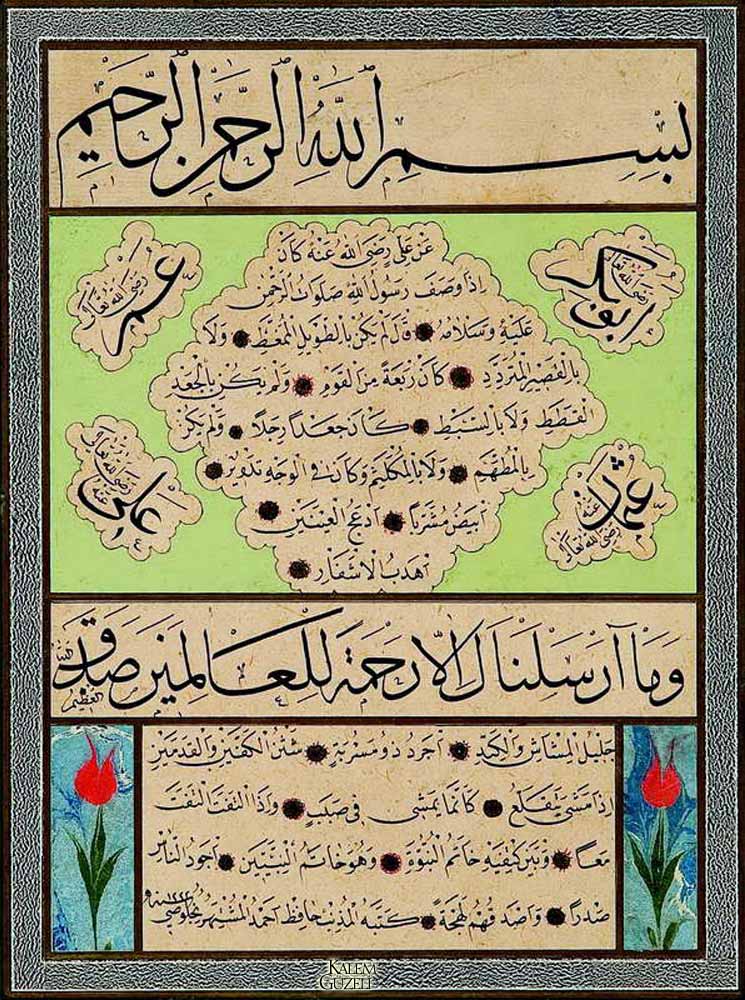 بسم الله الرحمن الرحيم
ابو بكر رضى الله تعالى عنه
عمر رضى الله تعالى عنه
عن على رضى الله عنه كان
اذا وصف رسول الله صلوات الرحمن
عليه وسلامه قال لم يكن بالطويل الممغط ولا
بالقصير المتردد كان ربعة من القوم ولم يكن بالجعد
القطط ولا بالسبط كان جعدا رجلا ولم يكن
بالمطهم ولا بالمكلثم وكان فى الوجه تدوير
ابيض مشربا ادعج العينين
اهدب الاشفار
عثمان رضى الله تعالى عنه
على رضى الله تعالى عنه
وما آرسلناك الا رحمة للعالمين صدق الله العظيم
جليل المشاش والكتد اجرد ذو مسربة شثن الكفين والقدمين
اذا مشى يتقلع كانما يمشى فى صبب واذا التفت التفت
معا وبين كتفيه خاتم النبوة وهو خاتم النبيين اجود الناس
صدرا واصدقهم لهجة كتبه المذنب حافظ احمد المشتهر
KALEM GÜZELİ